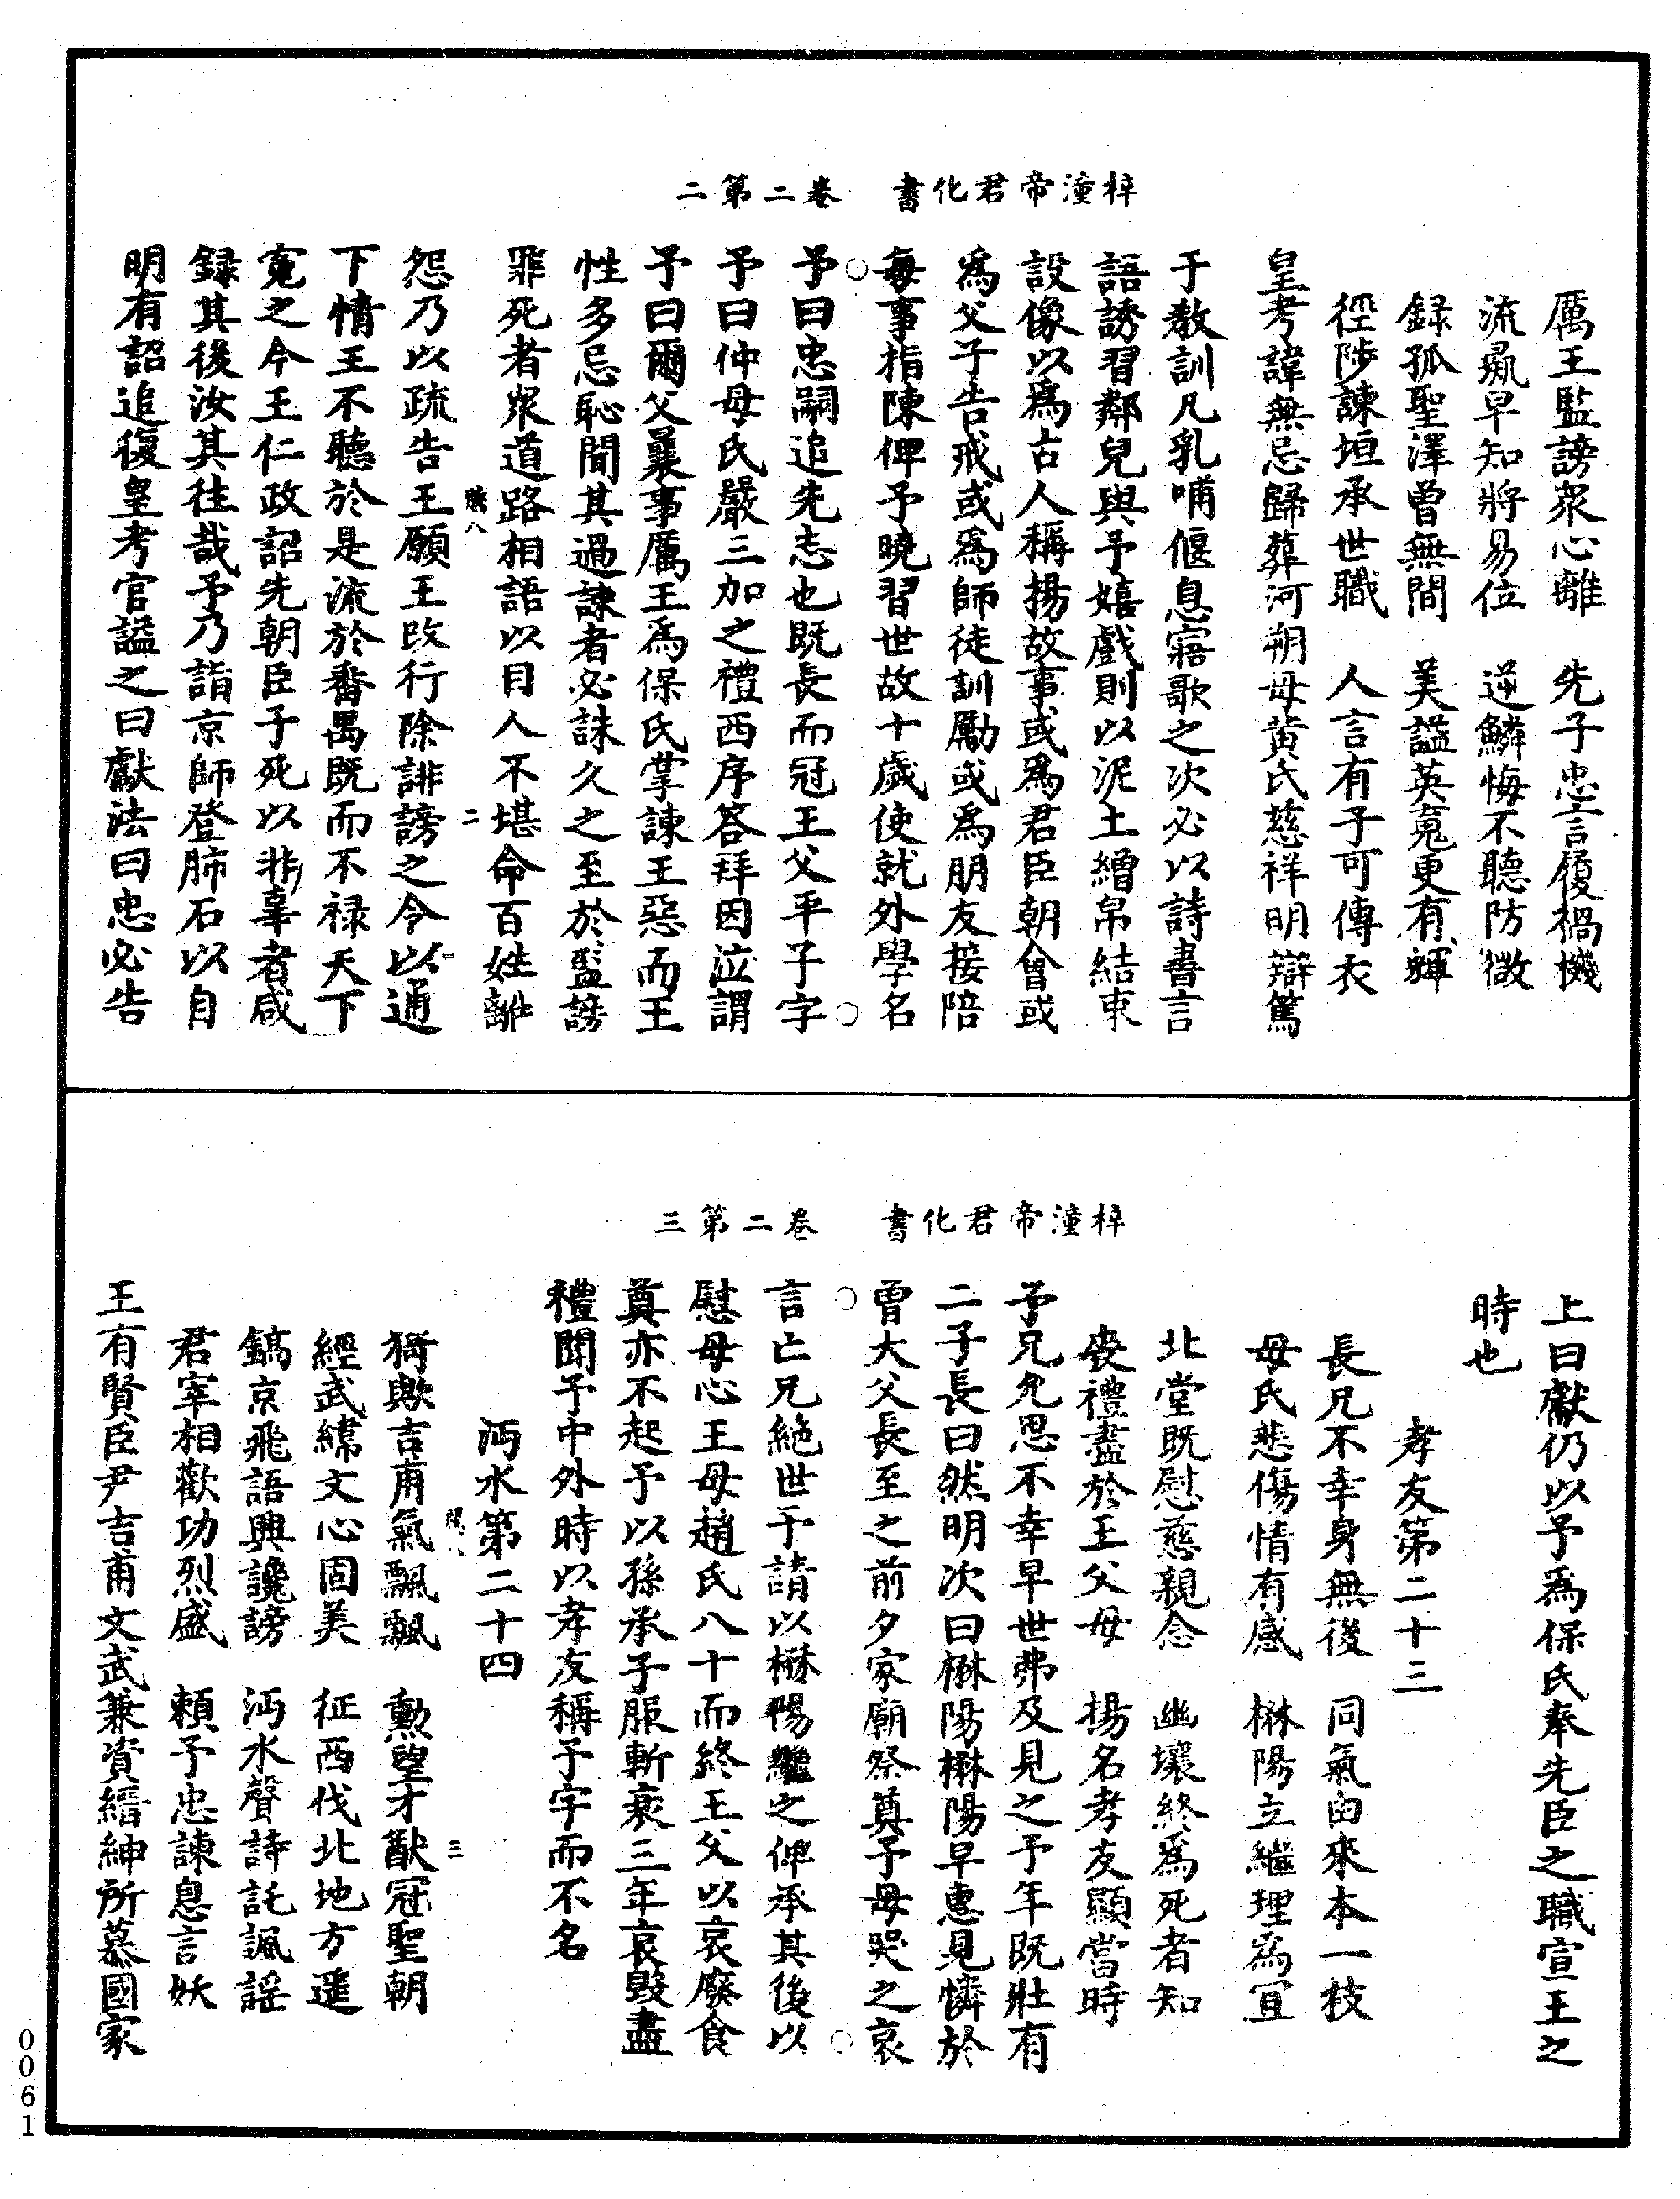 梓潼帝君化書　卷二第二
厲王監謗衆心離　先子忠言履禍機
流彘早知將易位　逆鱗悔不聽防微
録孤聖澤曾無間　美謚英䰟更有輝
徑陟諫垣承世職　人言有子可傳衣
皇考諱無忌歸葬河朔母黄氏慈祥明辯篤
于教訓凡乳哺偃息寤歌之次必以詩書言
語誘習鄰兒與予嬉戲則以泥土繒帛結束
設像以爲古人稱揚故事或爲君臣朝會或
爲父子告戒或爲師徒訓勵或爲朋友接陪
每事指陳俾予曉習世故十歲使就外學名
予曰忠嗣追先志也既長而冠王父平子字
予曰仲母氏嚴三加之禮西序答拜因泣謂
予曰爾父曩事厲王爲保氏掌諫王惡而王
性多忌恥聞其過諫者必誅久之至於監謗
罪死者衆道路相語以目人不堪命百姓離
怨乃以疏告王願王改行除誹謗之令以通
下情王不聽於是流於番禺既而不禄天下
寃之今王仁政詔先朝臣子死以非辜者咸
録其後汝其往哉予乃詣京師登肺石以自
明有詔追復皇考官謚之曰獻法曰忠必告
梓潼帝君化書　卷二第三
上曰獻仍以予爲保氏奉先臣之職宣王之
時也
孝友第二十三
長兄不幸身無後　同氣由來本一枝
母氏悲傷情有感　楙陽立繼理爲宜
北堂既慰慈親念　幽壤終爲死者知
喪禮盡於王父母　揚名孝友顯當時
予兄允思不幸早世弗及見之予年既壯有
二子長曰然明次曰楙陽楙陽早惠見憐於
曾大父長至之前夕家廟祭奠予母哭之哀
言亡兄絶世于請以楙陽繼之俾承其後以
慰母心王母趙氏八十而終王父以哀廢食
奠亦不起予以孫承子服斬衰三年哀毁盡
禮聞予中外時以孝友稱予字而不名
沔水第二十四
猗歟吉甫氣飄飄　勲望才猷冠聖朝
經武緯文心固美　征西伐北地方遥
鎬京飛語興讒謗　沔水聲詩託諷謡
君宰相歡功烈盛　賴予忠諫息言妖
王有賢臣尹吉甫文武兼資縉紳所慕國家
0061